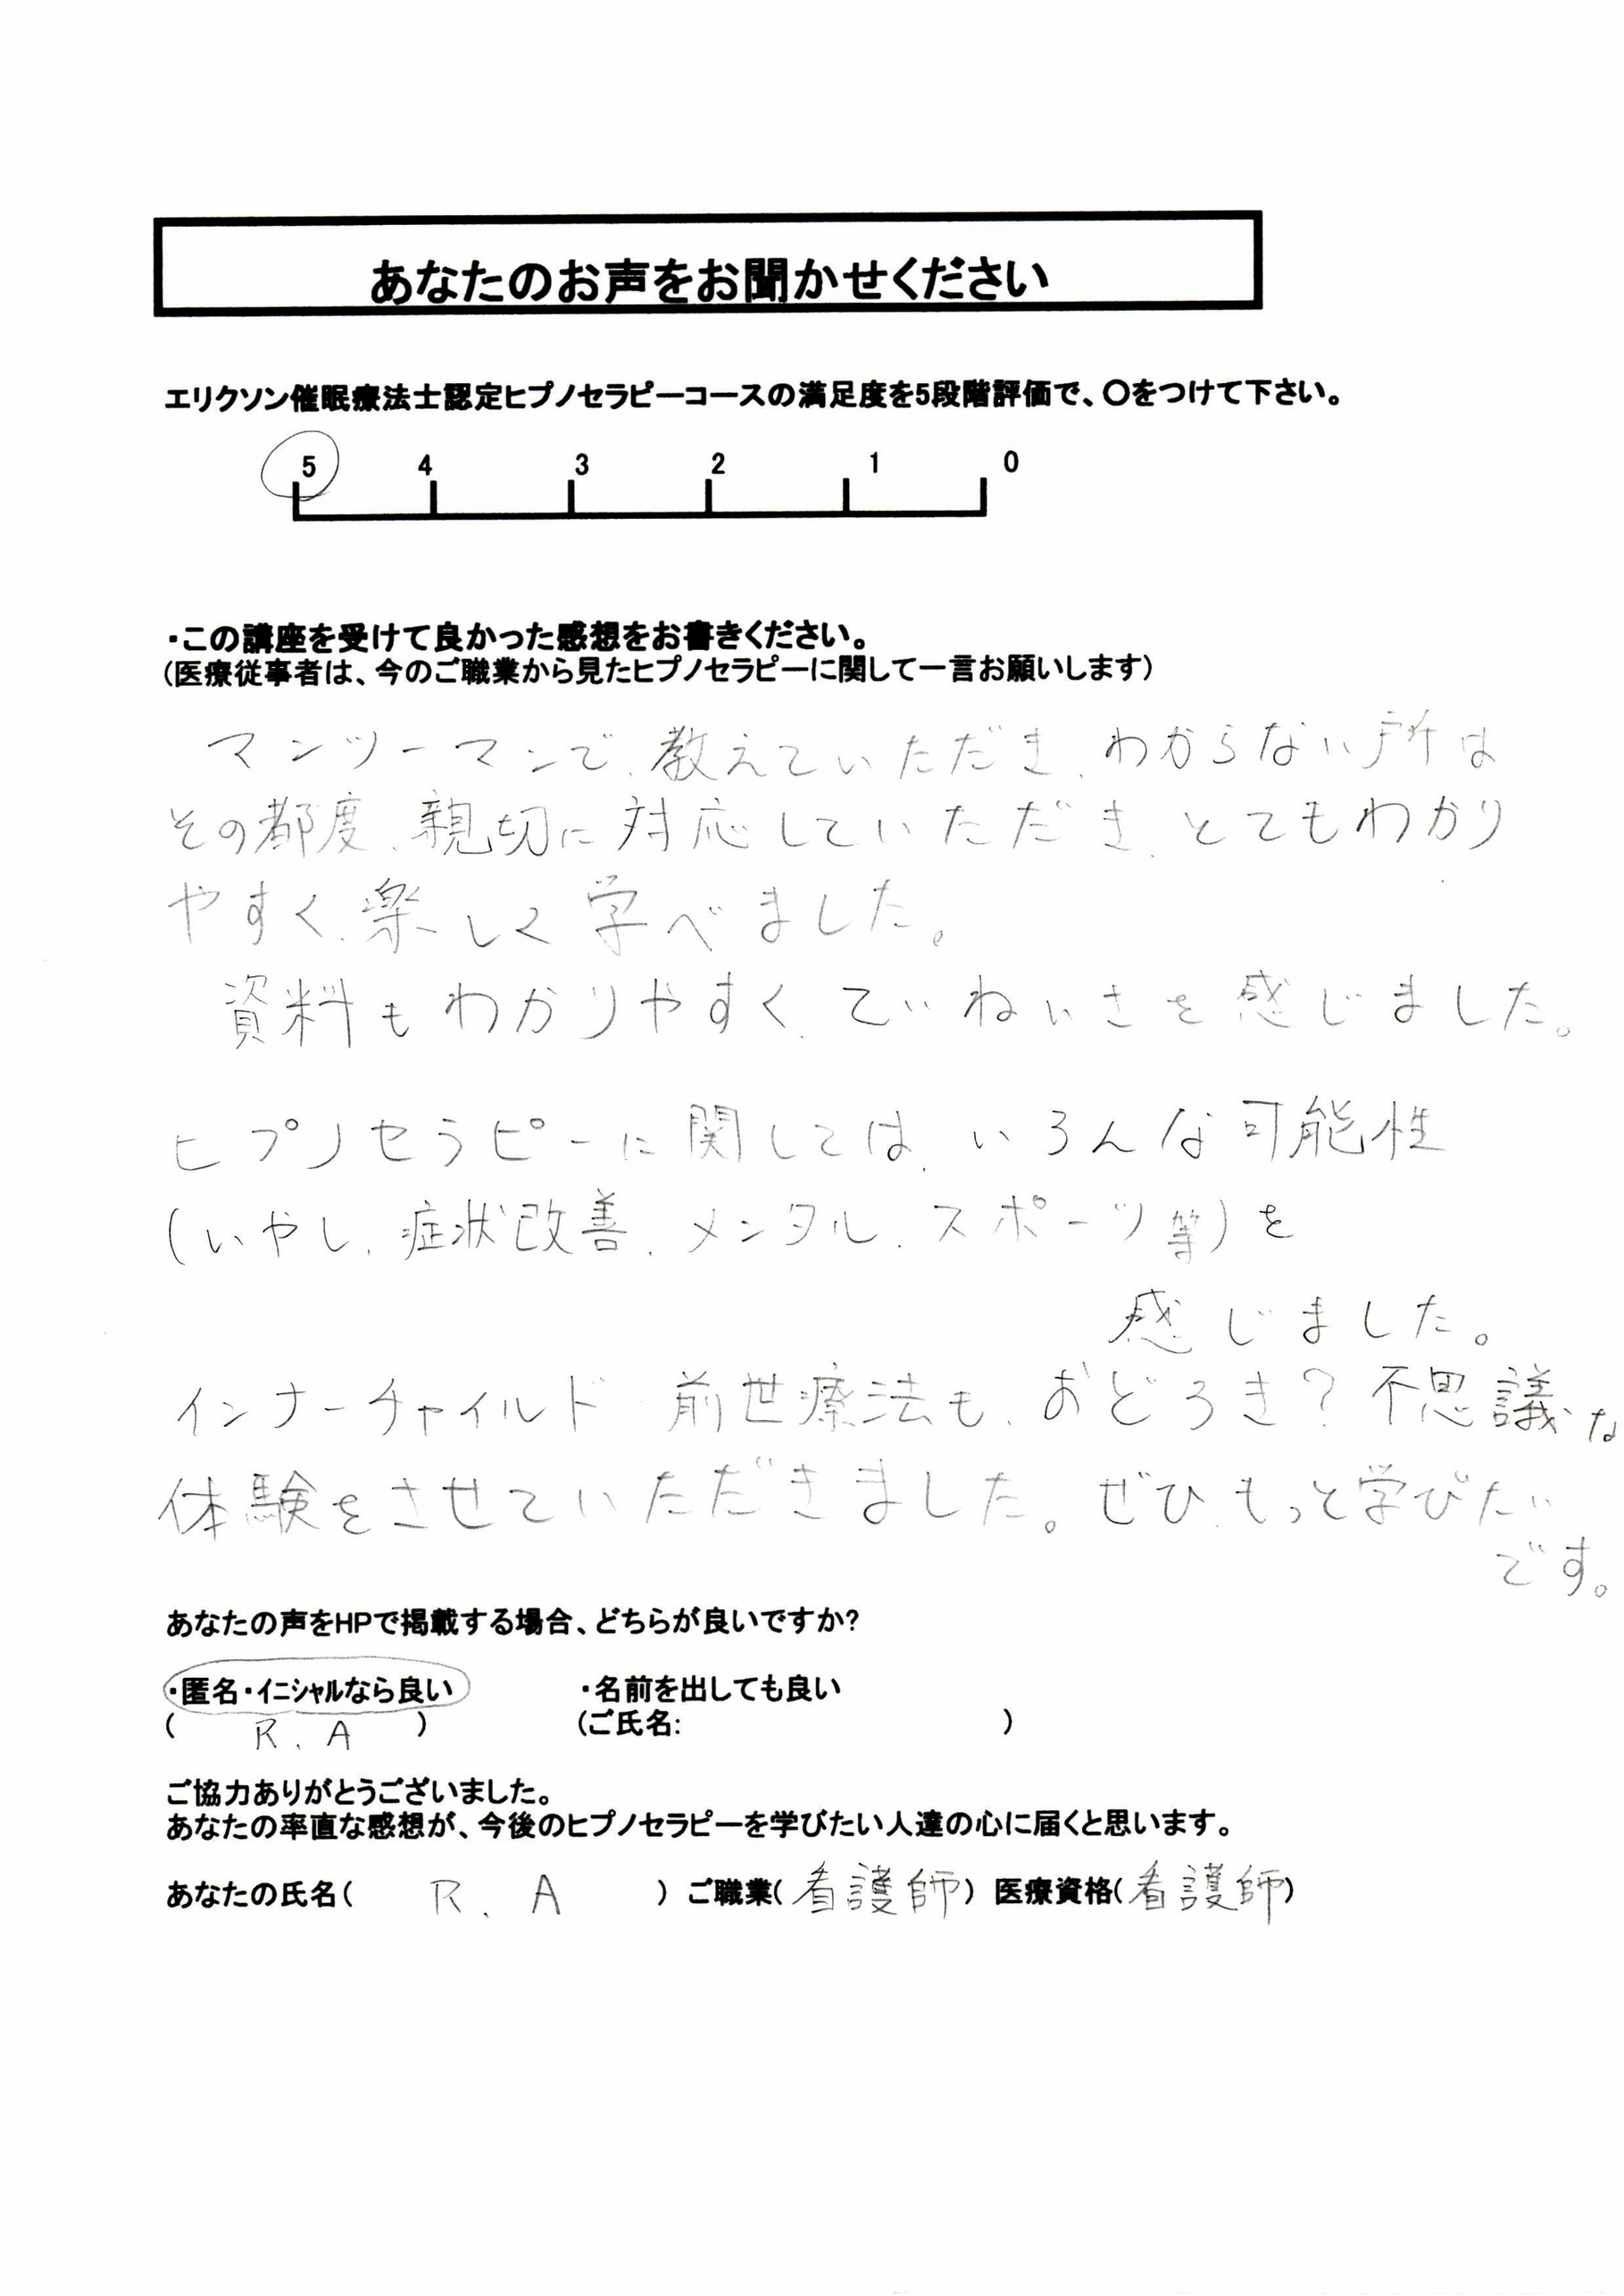 あなたのお声をお聞かせください
エリクソン催眠療法士認定ヒプノセラピーコースの満足度を5段階評価で、〇をつけて下さい。
5 4 3 2 1 0
・この講座を受けて良かった感想をお書きください。
(医療従事者は、今のご職業から見たヒプノセラピーに関して一言お願いします)
マンツーマンで、教えていただき、わからない所は
その都度、親切に対応していただき、とてもわかり
やすく、楽しく学べました。
資料もわかりやすく、ていねいさを感じました。
ヒプノセラピーに関しては、いろんな可能性
(いやし、症状改善、メンタル、スポーツ等)を
感じました。
インナーチャイルド 前世療法も、おどろき?不思議な
体験をさせていただきました。ぜひ、もっと学びたい
です。
あなたの声をHPで掲載する場合、どちらが良いですか?
・匿名・イニシャルなら良い ・名前を出しても良い
( R.A ) (ご氏名: )
ご協力ありがとうございました。
あなたの率直な感想が、今後のヒプノセラピーを学びたい人達の心に届くと思います。
あなたの氏名( R.A ) ご職業(看護師) 医療資格(看護師)